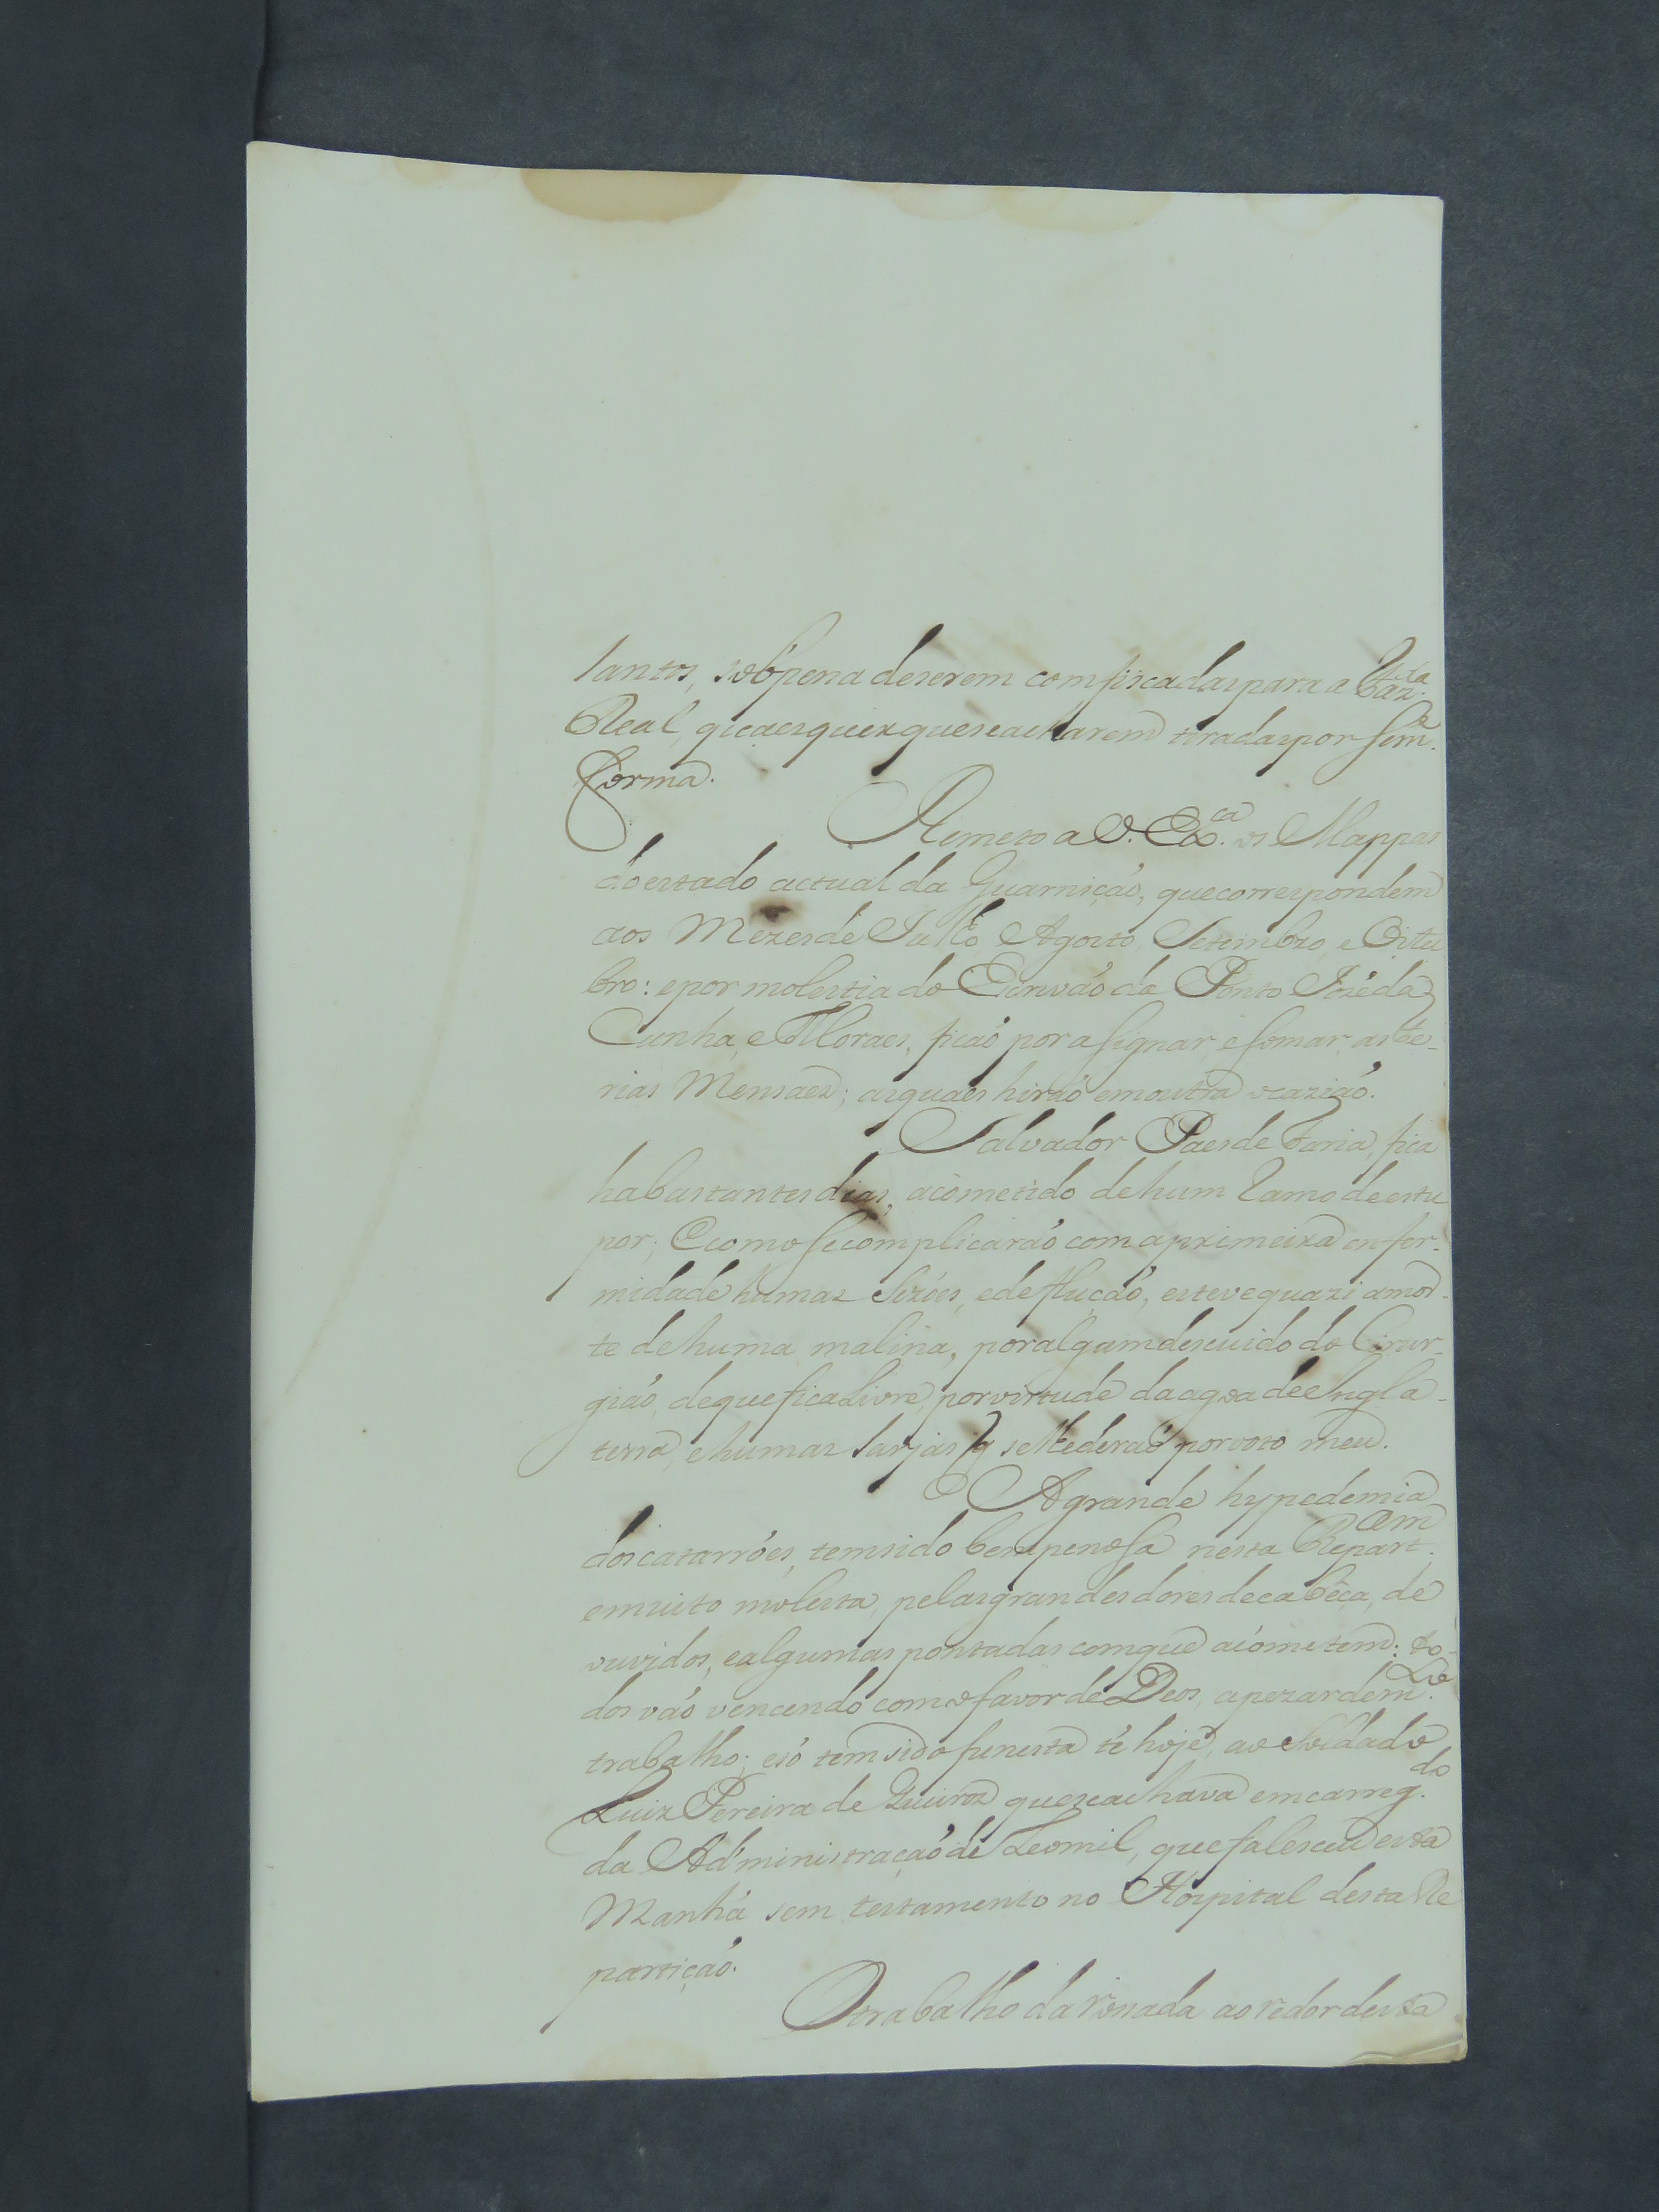 tantos, sobpena deserem comfiscadas para a Faz.da
Real, quaesquer queseacharem tiradas por sem.e
forma.
Remeto a V. Ex.ca os Mappas
do estado actual da Guarnição, que correspondem
aos Mezes de Julho Agosto, Setembro, e Oitu
bro: epor molestia do Escrivão da Ponto Jozé da
Cunha, e Moraes, ficão por asignar, esomar, as Fe-
rias Mensaes; asquaes hirão emoutra ocazião.
Salvador Paes de Faria, fica
habastantes dias, acometido dehum Ramo deestu
por; Ecomo secomplicarão comaprimeira enfer-
midade humas Sezões, edeflução, esteve quazi amor-
te dehuma malina, por algum descuido do Cirur-
gião, dequeficalivre, porvirtude daagoa deIngla-
terra, ehumas sarjas q selhederão porvoto meu.
Agrande hypedemia
dos catarrões, temsido bempenosa nesta Repart.am
emuito molesta, pelasgrandes dores decabêça, de
ouvidos, ealgumas pontadas comque acometem: to-
dos vão vencendo com ofavor de Deos, apezar dem.to
trabalho; esó tem sido funesta té hoje, ao Soldado
Luiz Pereira de Queiroz queseachava emcarreg.do
da Administração de Leomil, que falesceu esta
Manhã sem testamento no Hospital desta Re
partição.
Otrabalho da rossada ao redor desta